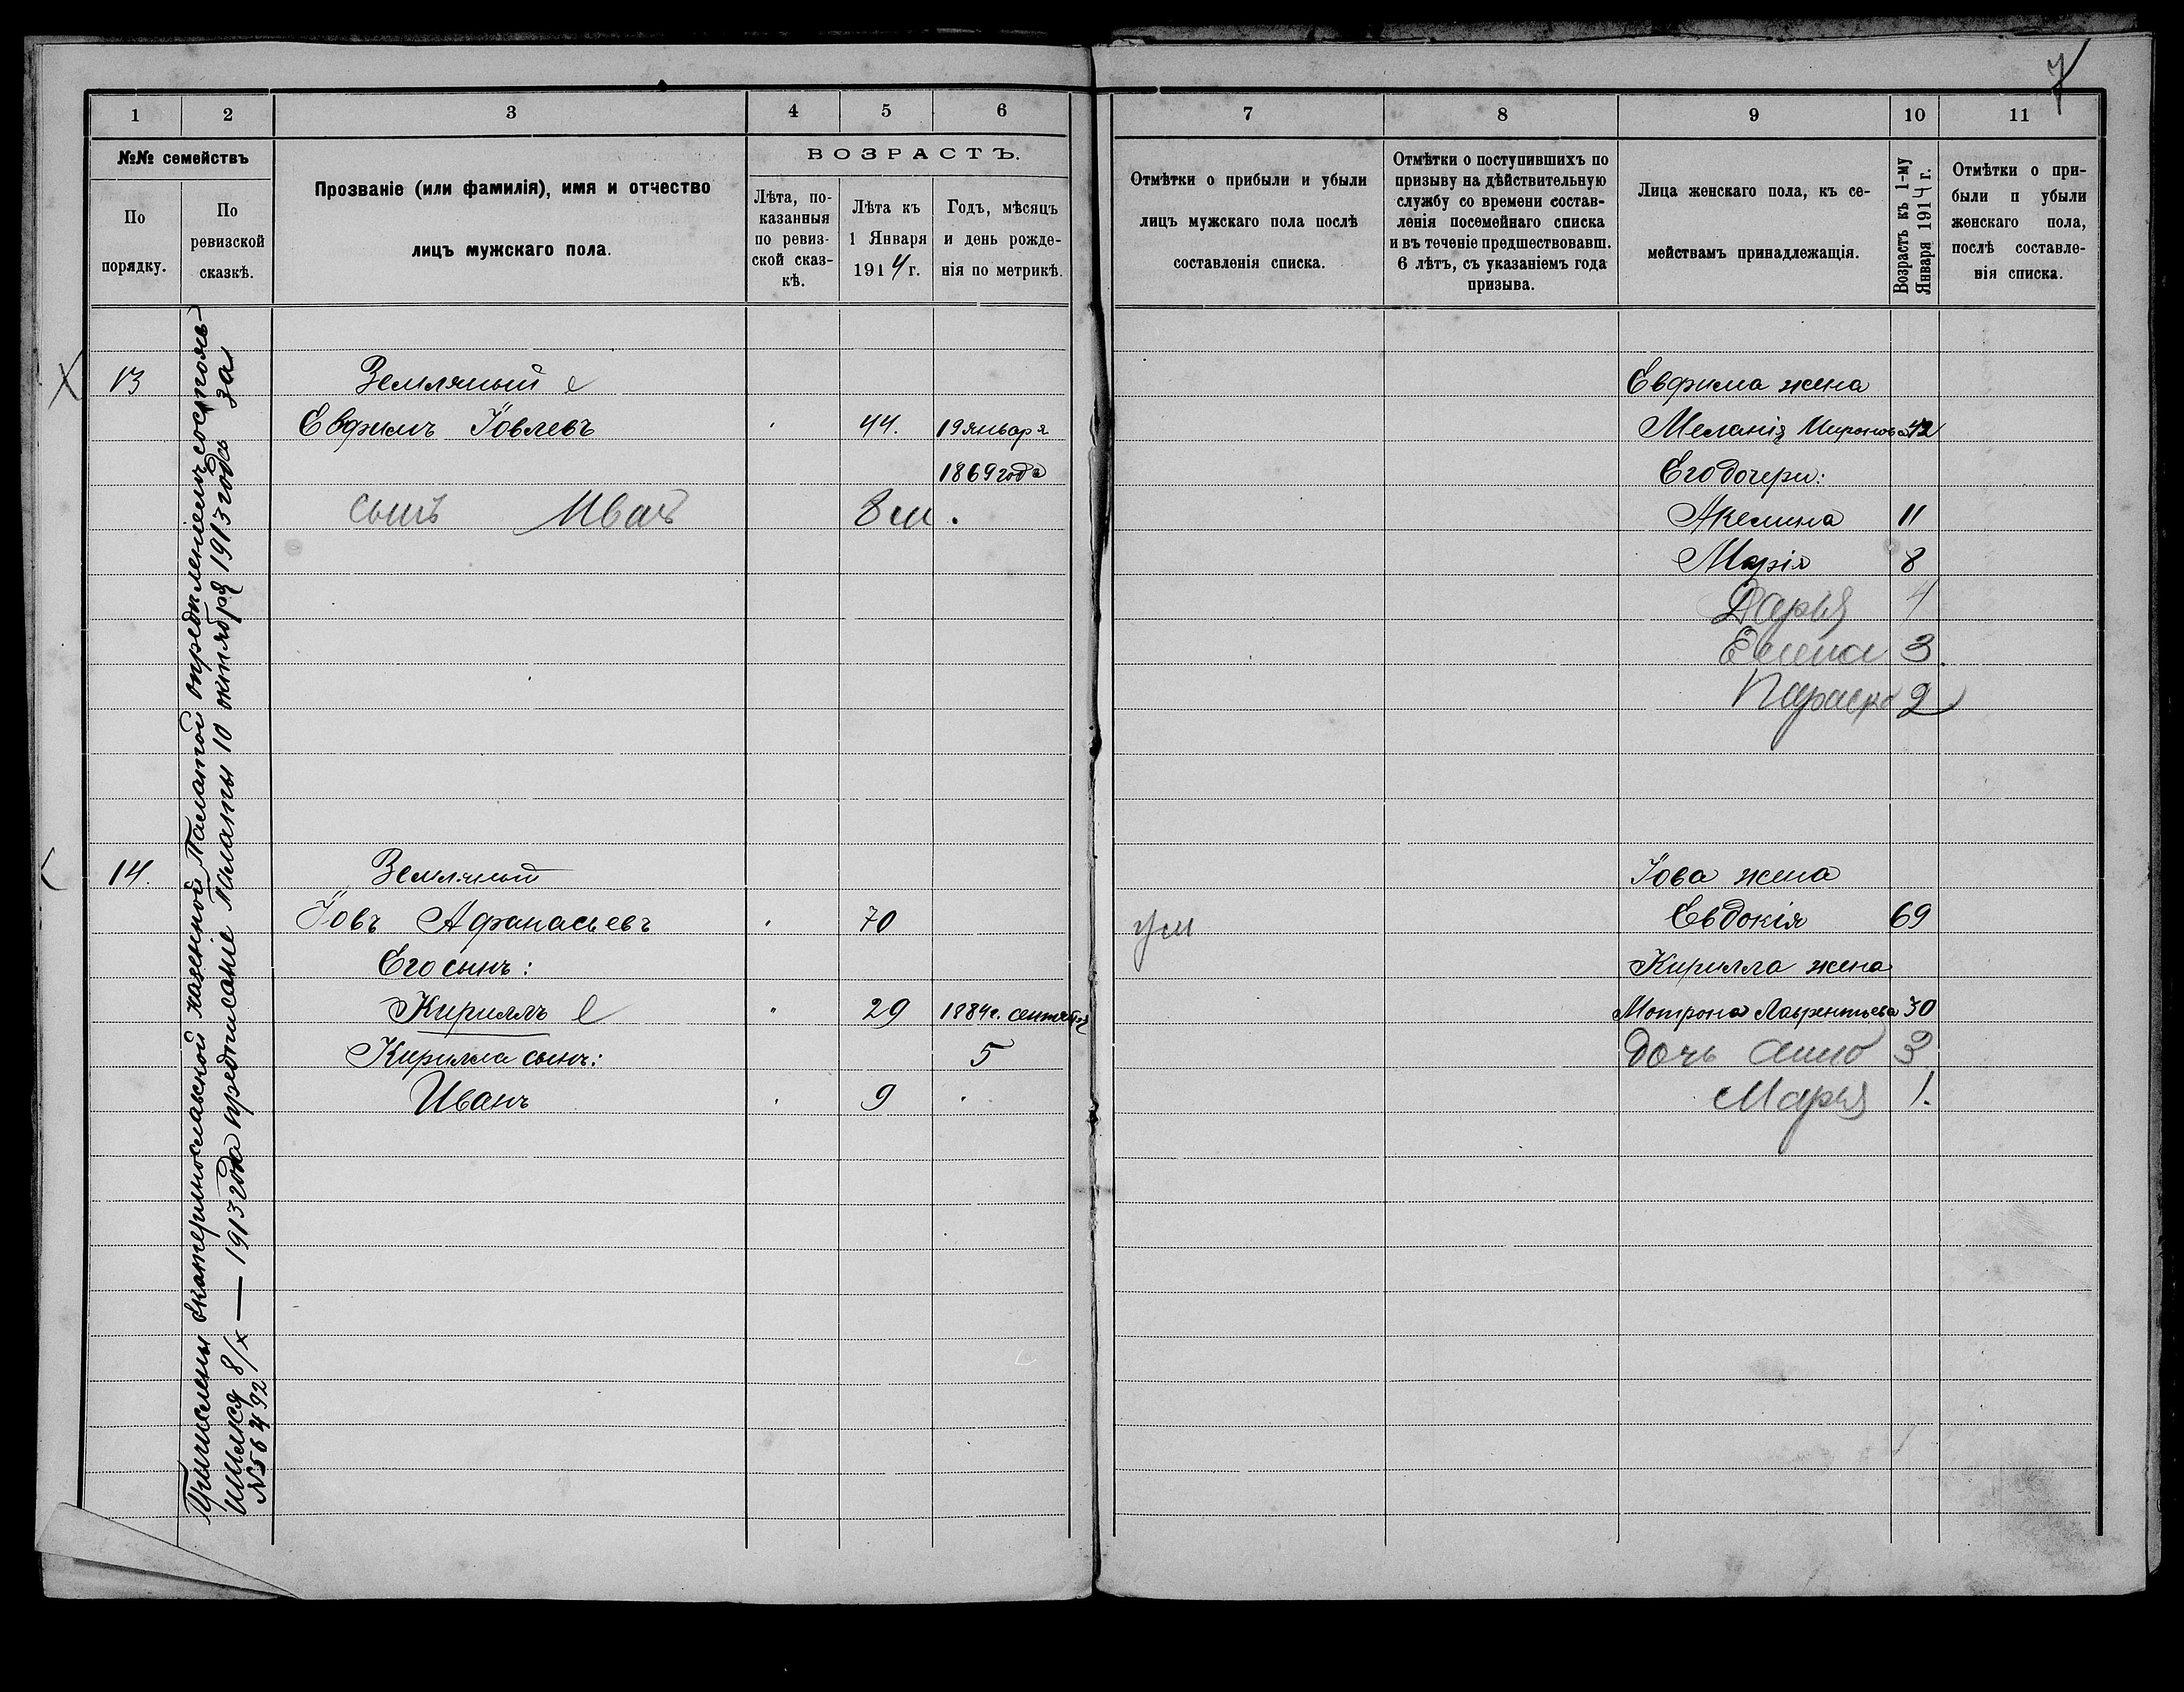 7
1 2 3 4 5 6
№№ семействъ
По порядку.
По ревизской сказкѣ.
Прозваніе (или фамилія), имя и отчество
лицъ мужскаго пола.
ВОЗРАСТЪ.
Лѣта, по-
казанныя
по ревиз-
ской сказ-
кѣ.
Лѣта къ
1 Января
1914 г.
Годъ, мѣсяцъ
и день рожде-
нія по метрикѣ.
Причислены Екатеринославской казенной Палатой опредѣленіемъ состояв-
шимся 8/х — 1913 года предписаніе Палаты 10 октября 1913 года за
№ 56492
13 Земляный
Евфимъ Іовлевъ 44. 19 января
1869 года
сынъ Иванъ 8 м.
14. Земляный
Іовъ Афанасьевъ 70
Его сынъ:
Кириллъ 29 1884 г. сентября
Кирилла сынъ: 5
Иванъ 9
7 8 9 10 11
Отмѣтки о прибыли и убыли
лицъ мужскаго пола послѣ
составленія списка.
Отмѣтки о поступившихъ по
призыву на дѣйствительную
службу со времени состав-
ленія посемейнаго списка
и въ теченіе предшествовавш.
6 лѣтъ, съ указаніемъ года
призыва.
Лица женскаго пола, къ се-
мействамъ принадлежащія.
Возрастъ къ 1-му
Января 1914 г.
Отмѣтки о при-
были п убыли
женскаго пола,
послѣ составле-
нія списка.
Евфима жена
Меланія Миронова 42
Его дочери:
Акелина 11
Марія 8
Дарья 4
Елена 3.
Параска 2
Іова жена
ум Евдокія 69
Кирилла жена
Мотрона Лаврентьева 30
дочь Анна 3
Марья 1.